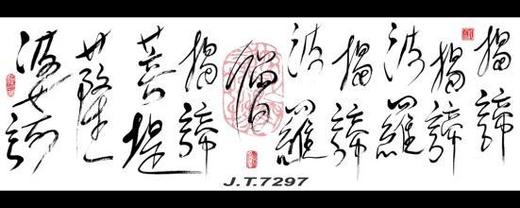 揭諦
揭諦
波羅
揭諦
波羅
僧
揭諦
菩提
薩
婆訶
J.T.7297